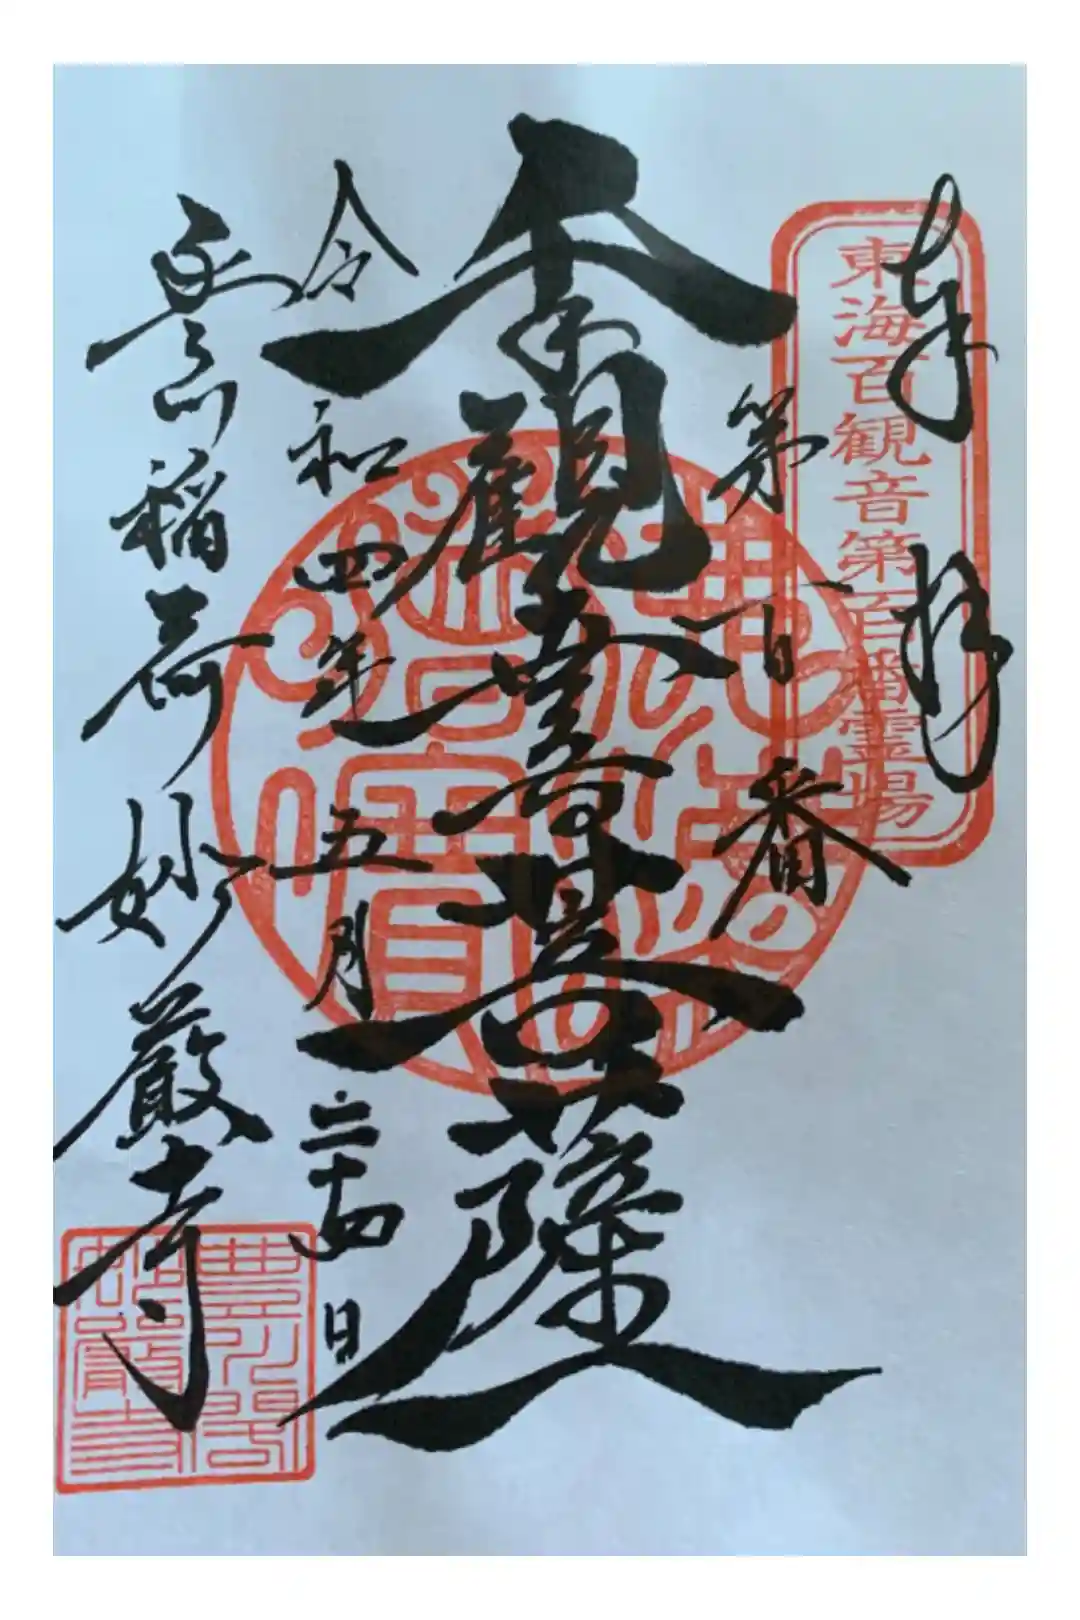 奉拝
東海百観音第百番霊場
第百番
千手觀世音菩薩
令和四年五月二十四日
豊川稲荷妙厳寺
豊川閣
妙嚴寺